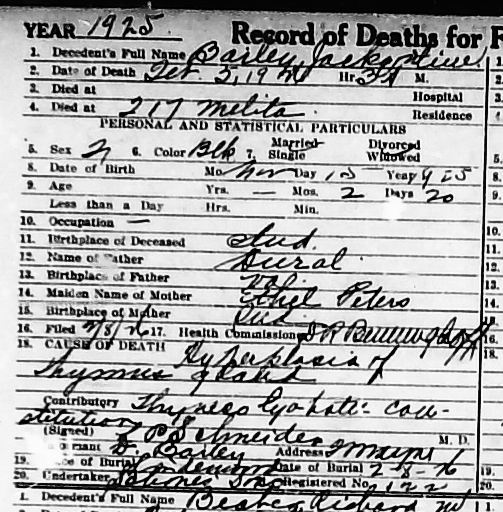 YEAR 1925 Record of Deaths for F
1. Decedent's Full Name Bailey, Jack
2. Date of Death Feb. 5, 192 Hr. M.
3. Died at Hospital
4. Died at 217 Melita Residence
PERSONAL AND STATISTICAL PARTICULARS
5. Sex M 6. Color Blk 7. Married Single Divorced Widowed
8. Date of Birth Mo. Nov Day 15 Year 925
9. Age Yrs. — Mos. 2 Days 20
Less than a Day Hrs. Min.
10. Occupation —
11. Birthplace of Deceased Ind.
12. Name of Father Dural
13. Birthplace of Father
14. Maiden Name of Mother Ethel Peters
15. Birthplace of Mother Ind.
16. Filed 2/8/26 17. Health Commissioner
18. CAUSE OF DEATH Hyperplasia of
Thymus gland
Contributory Thymico lymphatic con-
stitution
(Signed) P Schneider M. D.
Informant D. Bailey Address
19. Place of Burial Date of Burial 2-8-26
20. Undertaker Registered No. 122
1. Decedent's Full Name Richard